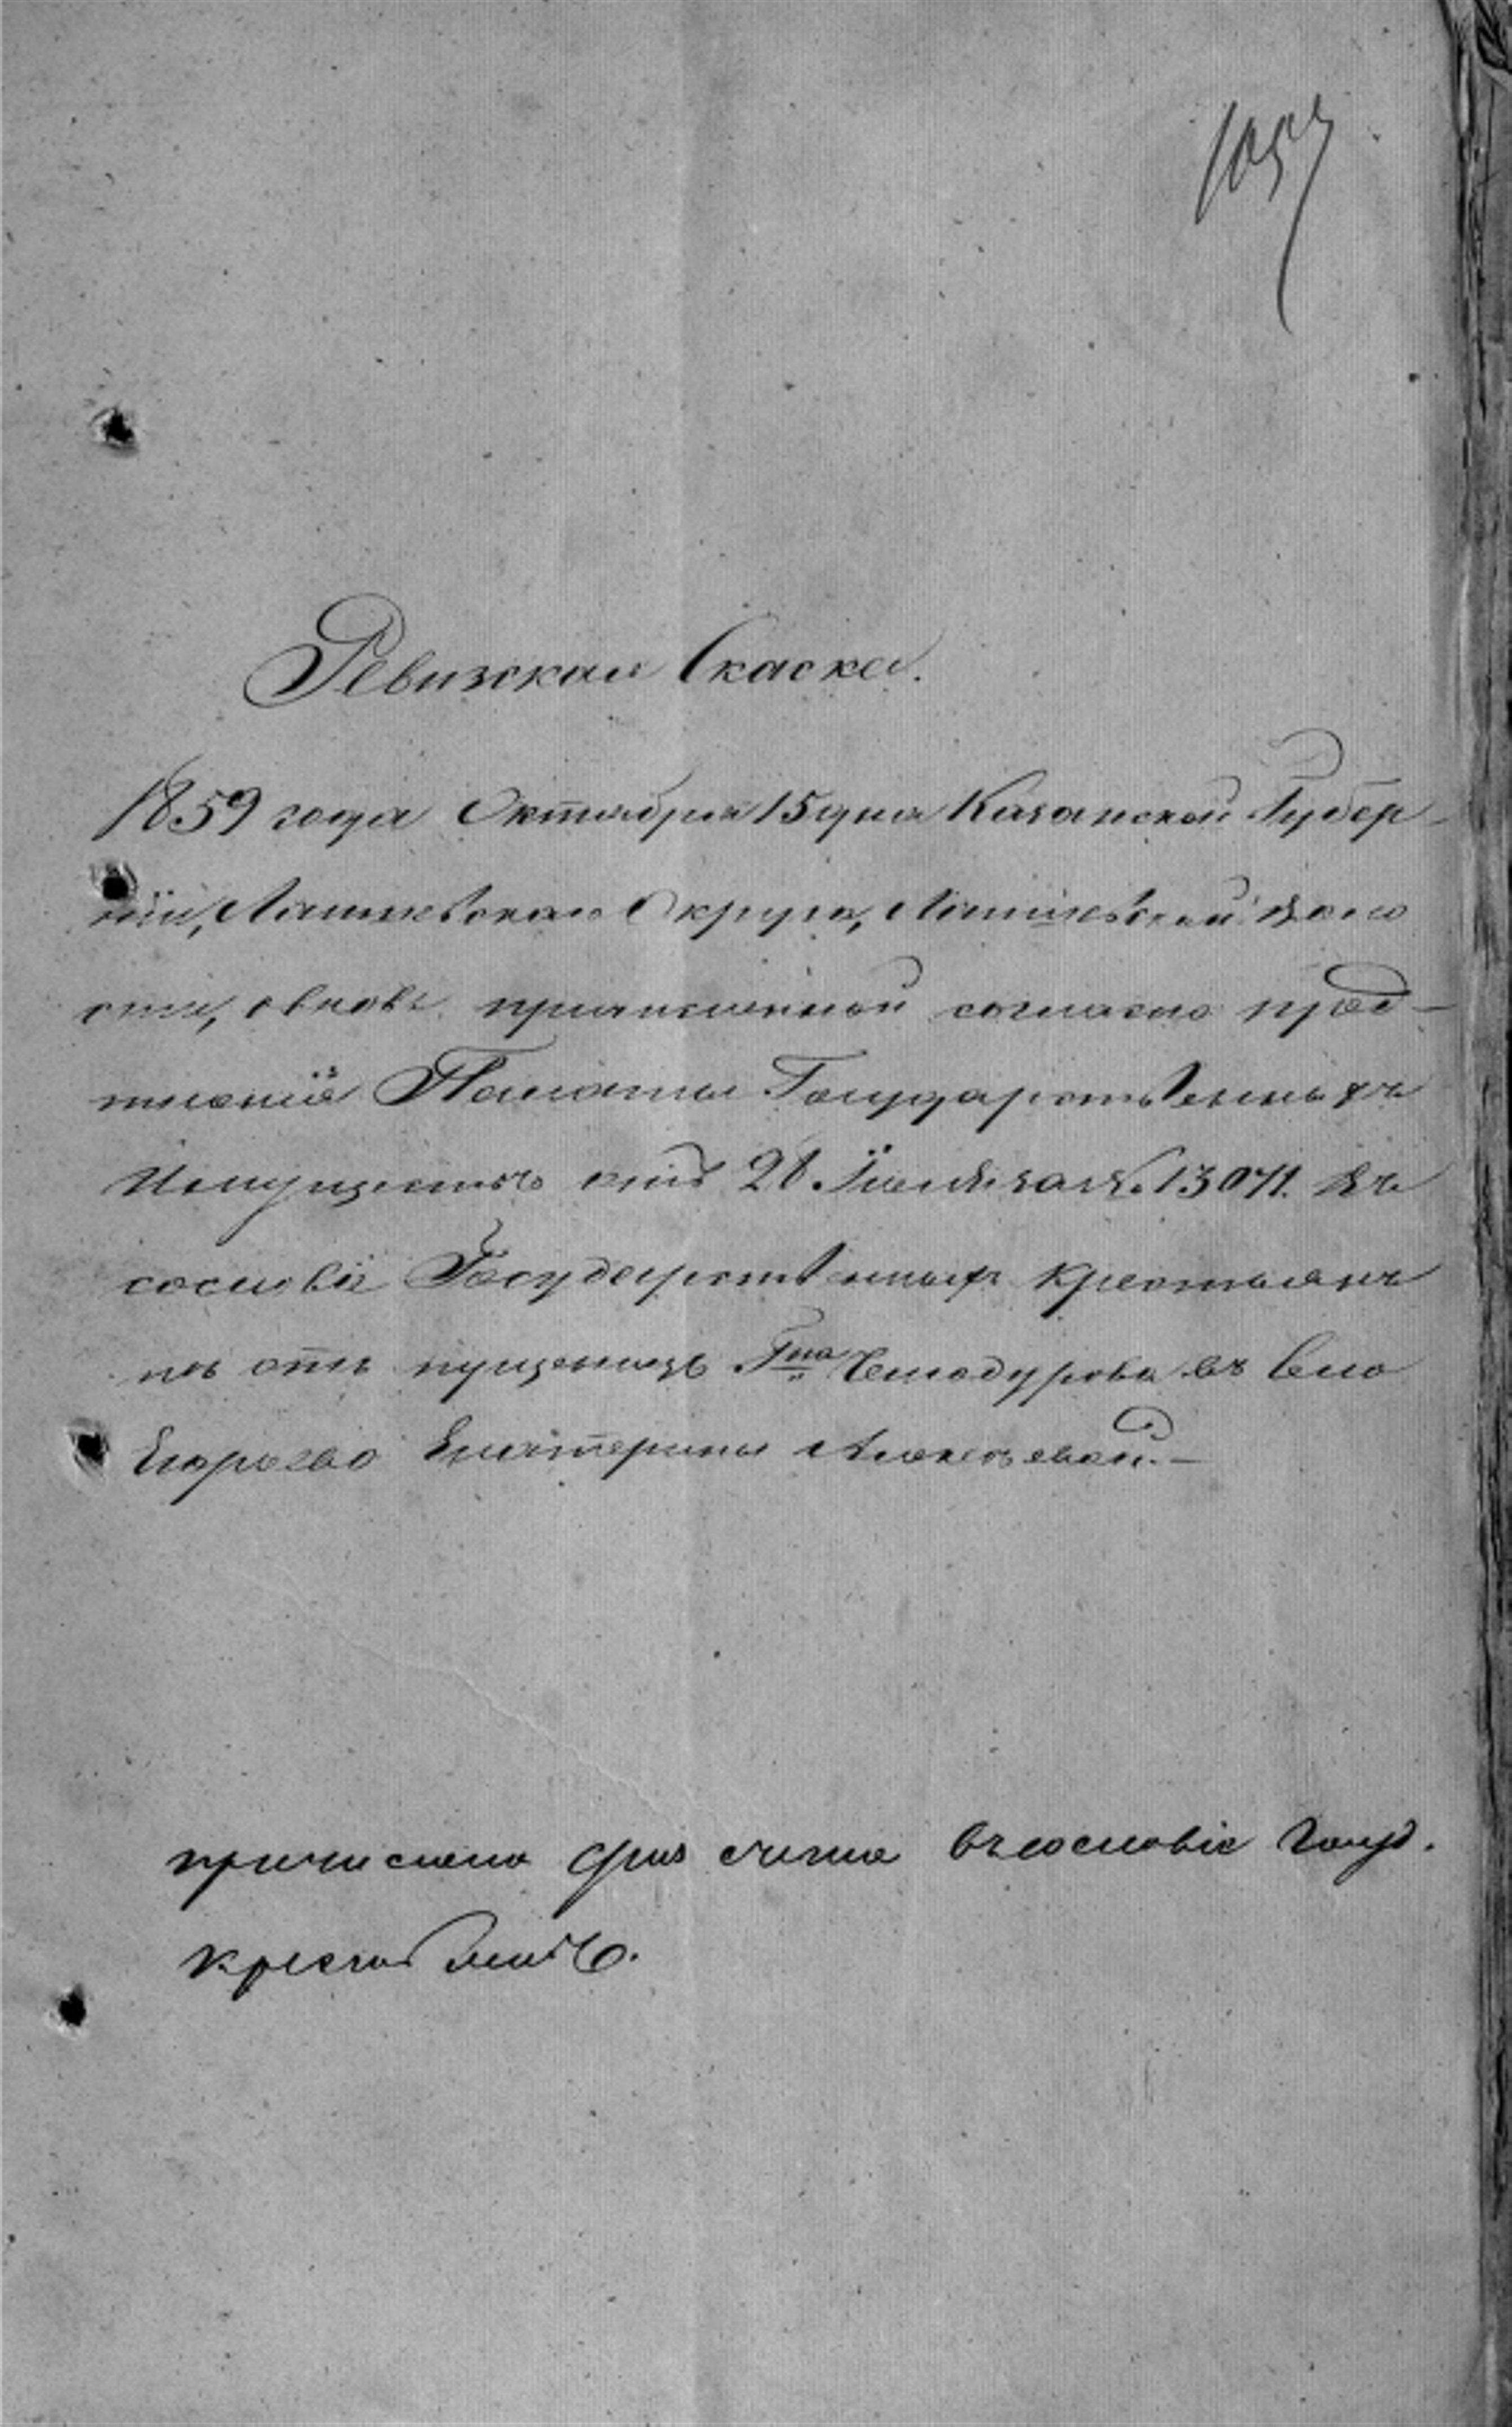 1057
Ревизская Скаска.
1859 года Октября 15 дня Казанской Губер-
ніи, Лаишевскаго Округа, Лаишевской Воло
сти, овновь причисленной согласно пред-
писанія Палаты Государственныхъ
Имуществъ отъ 28 № 13071. Въ
сословіе Государственныхъ крестьянъ
отъ Гна Чемодурова въ Село
Егорьево Екатерины Алексѣевой.-
причислена въ сословіе Госуд.